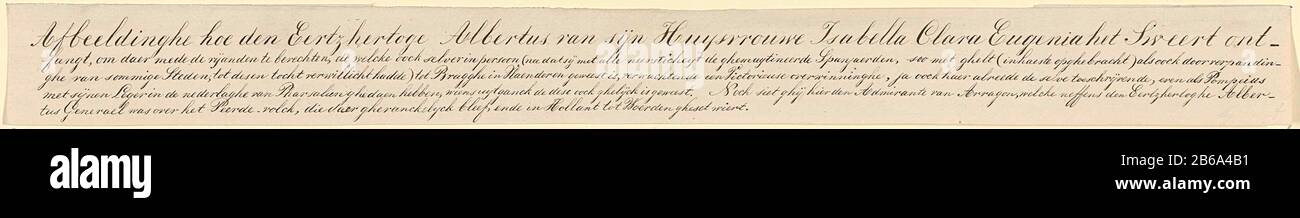 Afbeeldinghe hoe den Eertzhertoge Albertus van sijn Huysvrouwe Isabella Clara Eugenia het Sweert ont-
fangt, om daer mede de vijanden te berechten, de welche ooch selver in persoon (nu dat sij met alle de ghemuytineerde Spanjaerden, soe met ghelt (in haeste opghebracht) als ooch door vermanin-
ghe van sommige Steden, tot desen tocht verwillicht hadde) tot Brugghe in Vlaenderen geweest, Victorieuse overwinninghe, ja ooch haer alreede de selve toeschrijvende, even als Pompeius
met sijnen Leger in de nederlaghe van Pharsalien ghedaen hebben, wiens uytganck de dese ooch ghelijck is geweest. Noch siet ghij hier den Admirante van Arragon, welche neffens den Eertzhertoghe Alber-
tus Generael was over het Peerde-volch, die daer ghevanckelyck bleef, ende in Hollant tot Woerden gheset wiert.
alamy
Image ID: 2B6A4B1
www.alamy.com